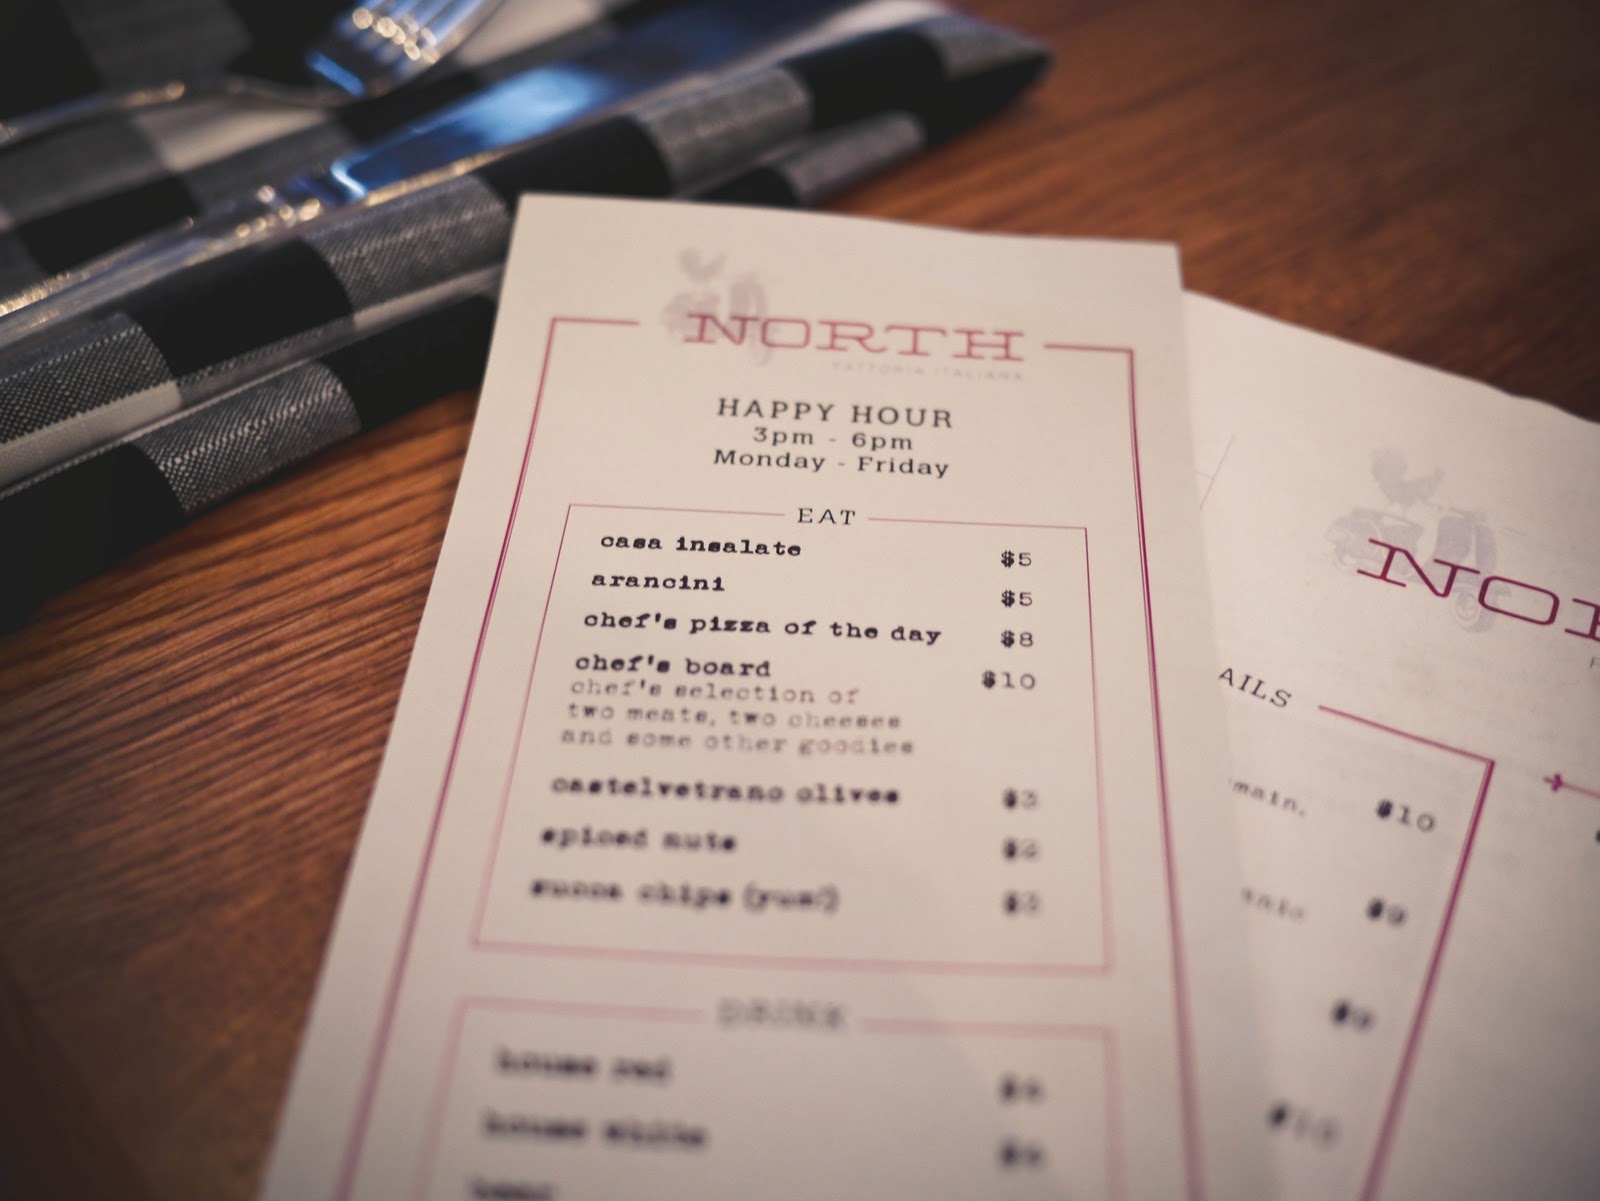 NORTH
FATTORIA ITALIANA
HAPPY HOUR
3pm - 6pm
Monday - Friday
EAT
casa insalate $5
arancini $5
chef's pizza of the day $8
chef's board $10
chef's selection of
two meats, two cheeses
and some other goodies
castelvetrano olives $3
spiced nuts
zucca chips (yum!)
DRINK
house red
house white
beer
NOR
F
AILS
main, $10
$9
$9
$10